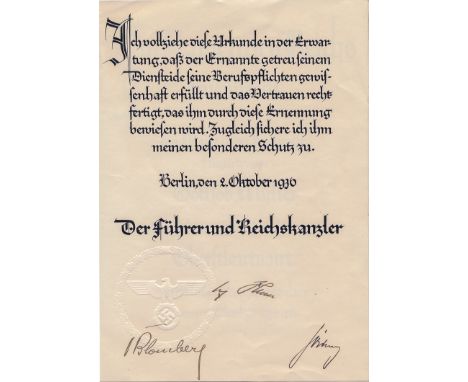 Ich vollziehe diese Urkunde in der Erwar-
tung, daß der Ernannte getreu seinem
Diensteide seine Berufspflichten gewis-
senhaft erfüllt und das Vertrauen recht
fertigt, das ihm durch diese Ernennung
bewiesen wird. Zugleich sichere ich ihm
meinen besonderen Schutz zu.
Berlin, den 2. Oktober 1936
Der Führer und Reichskanzler
vBlomberg